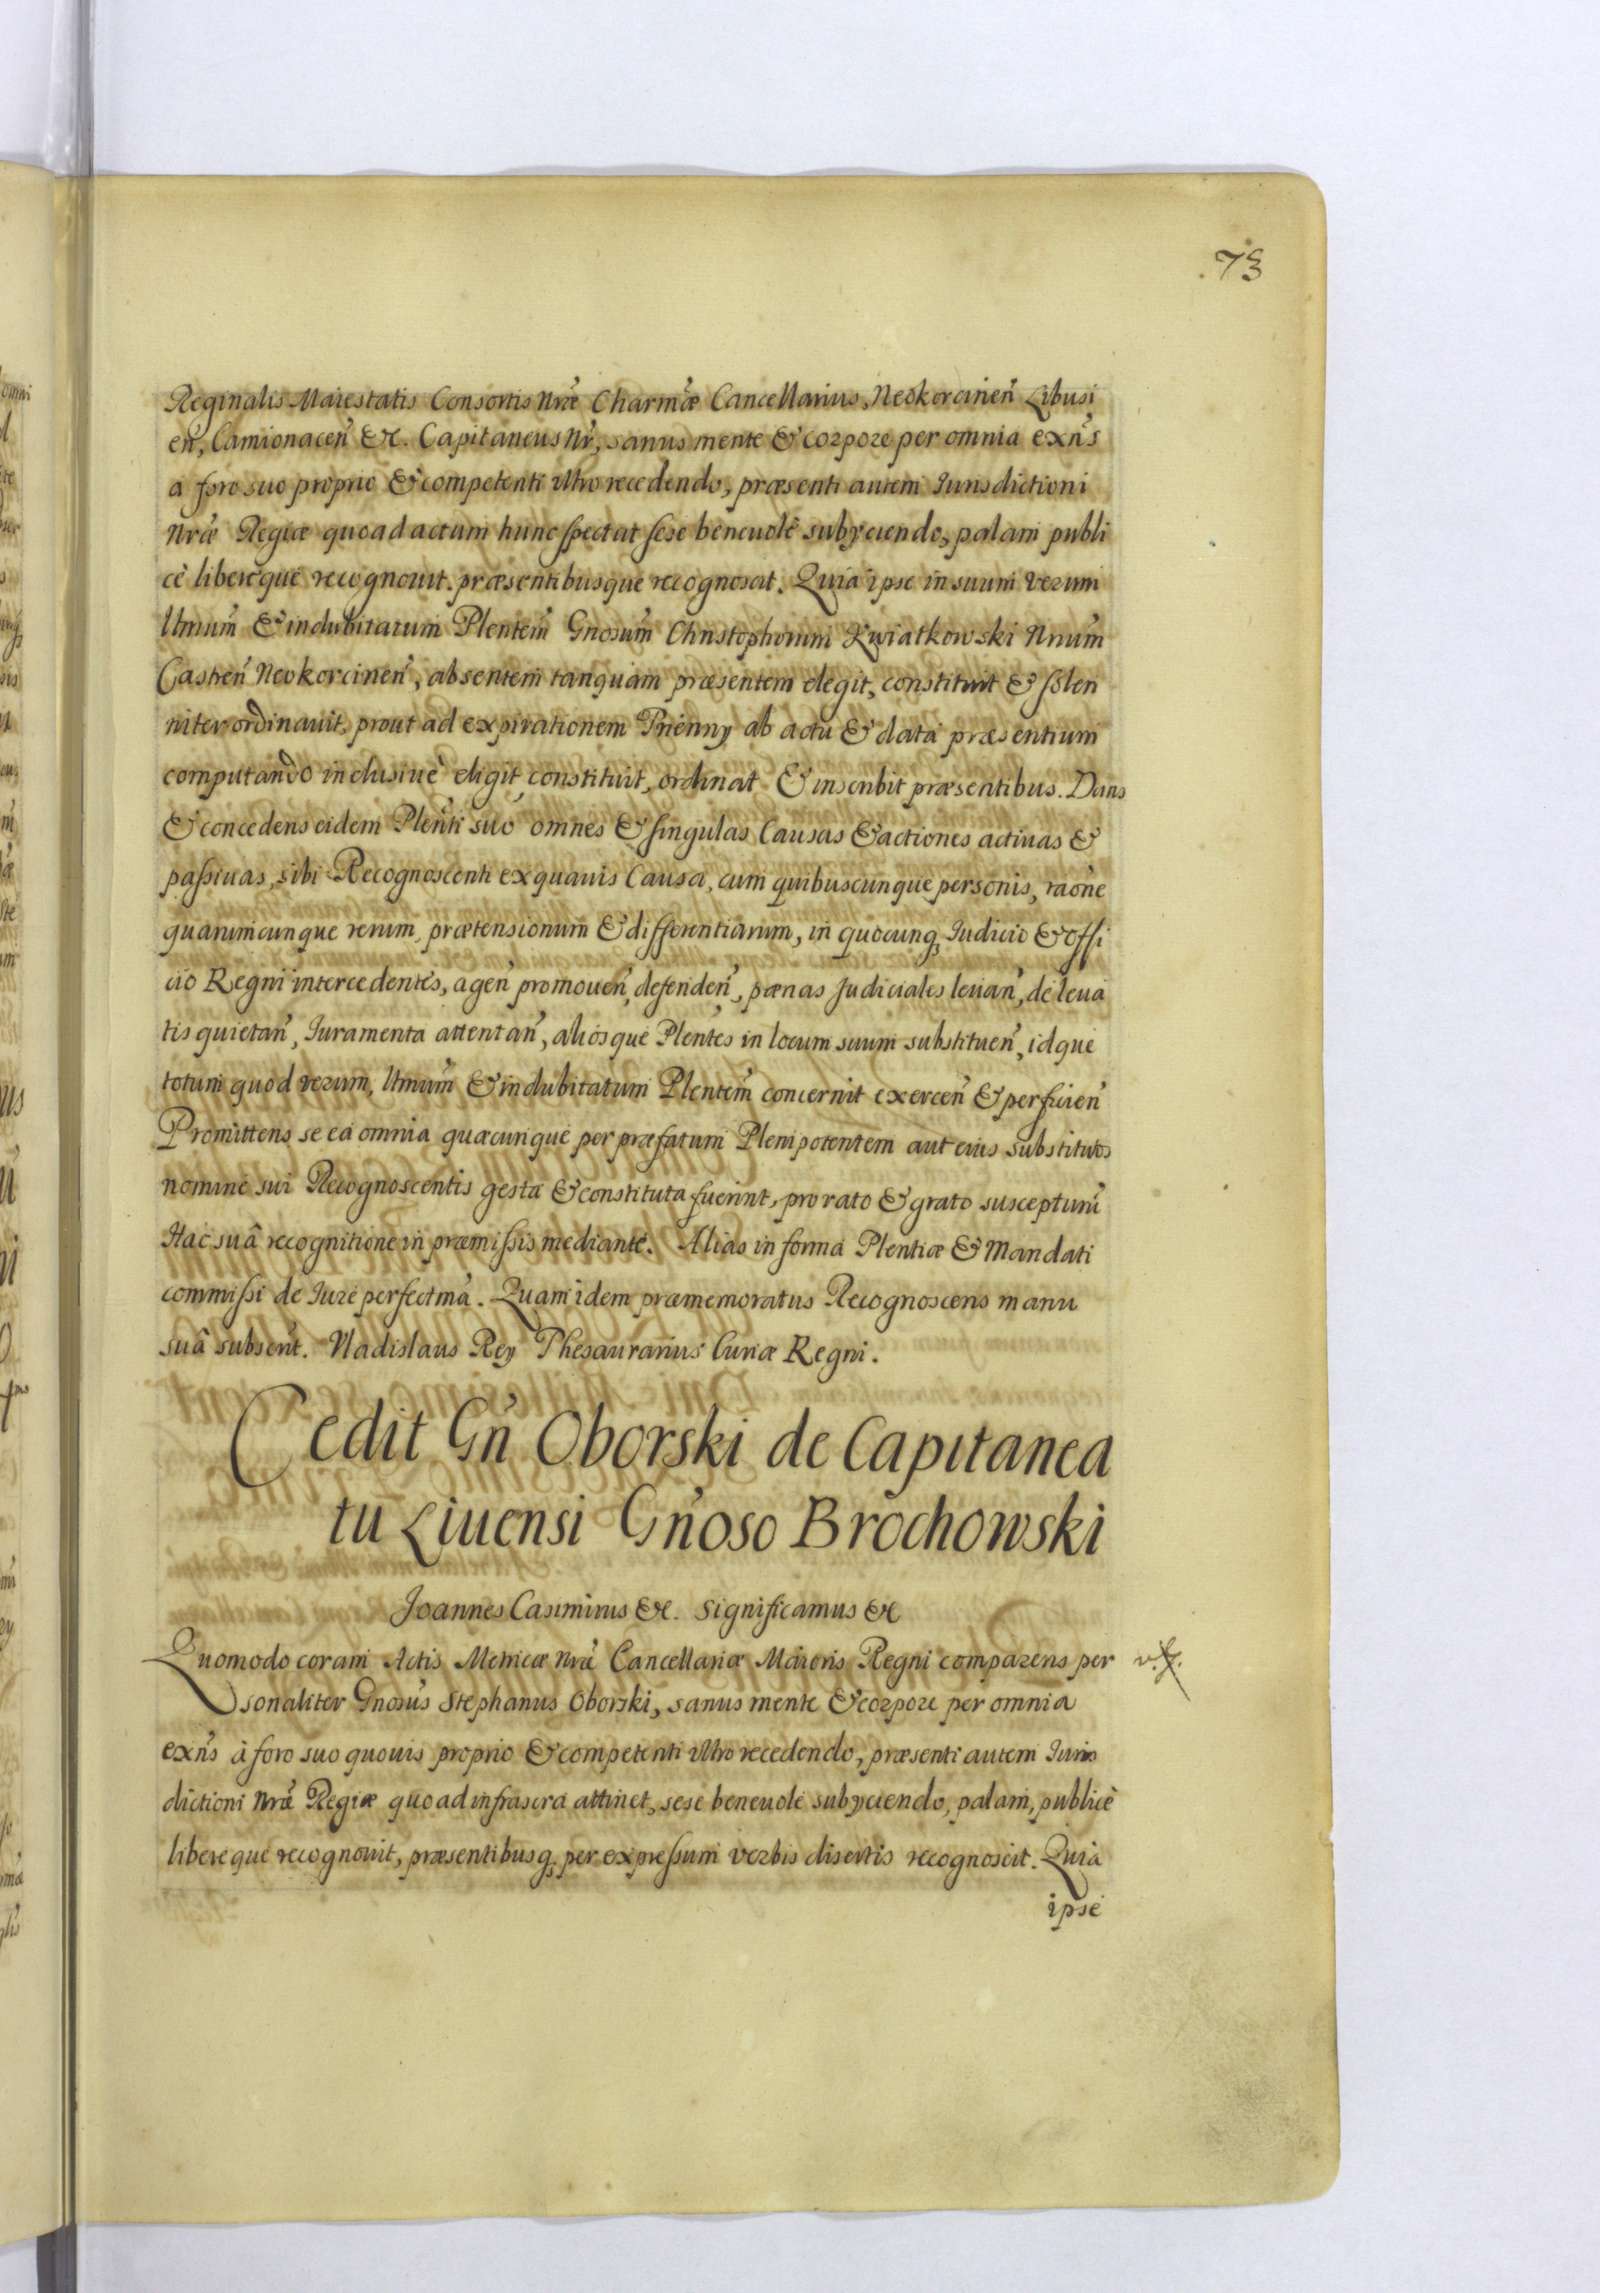 73
Reginalis Maiestatis Consortis Nræ Charmæ Cancellarius, Neokorcineñ Libusi
eñ, Camionaceñ &c. Capitaneus Nr, sanus mente & corpore per omnia exñs
a foro suo proprio & competenti vltro recedendo, præsenti autem Iurisdictioni
Nræ Regiæ quoad actum hunc spectat sese beneuolè subyciendo, palam publi
cè libereque recognouit. præsentibusque recognoscit. Quia ipse in suum verum
ltmum̃ & indubitatum Plentem̃ Gnosum̃ Christophorum Kwiatkowski Nrium̃
Castreñ Neokorcineñ, absentem tanquam præsentem elegit, constituit & solen
niter ordinauit, prout ad expirationem Trienny ab actu & data præsentium
computando inclusiuè eligit, constituit, ordinat & inscribit præsentibus. Dans
& concedens eidem Plenti suo omnes & singulas Causas & actiones actiuas &
passiuas, sibi Recognoscenti ex quauis Causa, cum quibuscunque personis, raõne
quarumcunque rerum, prætensionum & differentiarum, in quocunq3 Iudicio & offi
cio Regni intercedentes, ageñ promoueñ, defendeñ, pœnas Judiciales leuañ, de leua
tis quietañ, Iuramenta attentañ, aliosque Plentes in locum suum substitueñ, idque
totum quod verum, ltmum̃ & indubitatum Plentem̃ concernit exerceñ & perficieñ
Promittens se ea omnia quæcunque per præfatum Plenipotentem aut eius substitutos
nomine sui Recognoscentis gesta & constituta fuerint, pro rato & grato suscepturũ
Hac suâ recognitione in præmissis mediante. Alias in forma Plentiæ & Mandati
commissi de Iure perfectmã. Quam idem præmemoratus Recognoscens manu
suâ subscrit. Vladislaus Rey Thesaurarius Curiæ Regni.
Cedit Gñ Oborski de Capitanea
tu Liuensi Gñoso Brochowski
Joannes Casimirus &c. Significamus &c
Quomodo coram Actis Metricæ Nræ Cancellariæ Maioris Regni comparens per
sonaliter Gnosus Stephanus Oborski, sanus mente & corpore per omnia
exñs à foro suo quouis proprio & competenti vltro recedendo, præsenti autem Iuris
dictioni Nræ Regiæ quoad infrascra attinet, sese beneuole subyciendo, palam, publicè
libereque recognouit, præsentibusq3 per expressum verbis disertis recognoscit. Quia
ipse